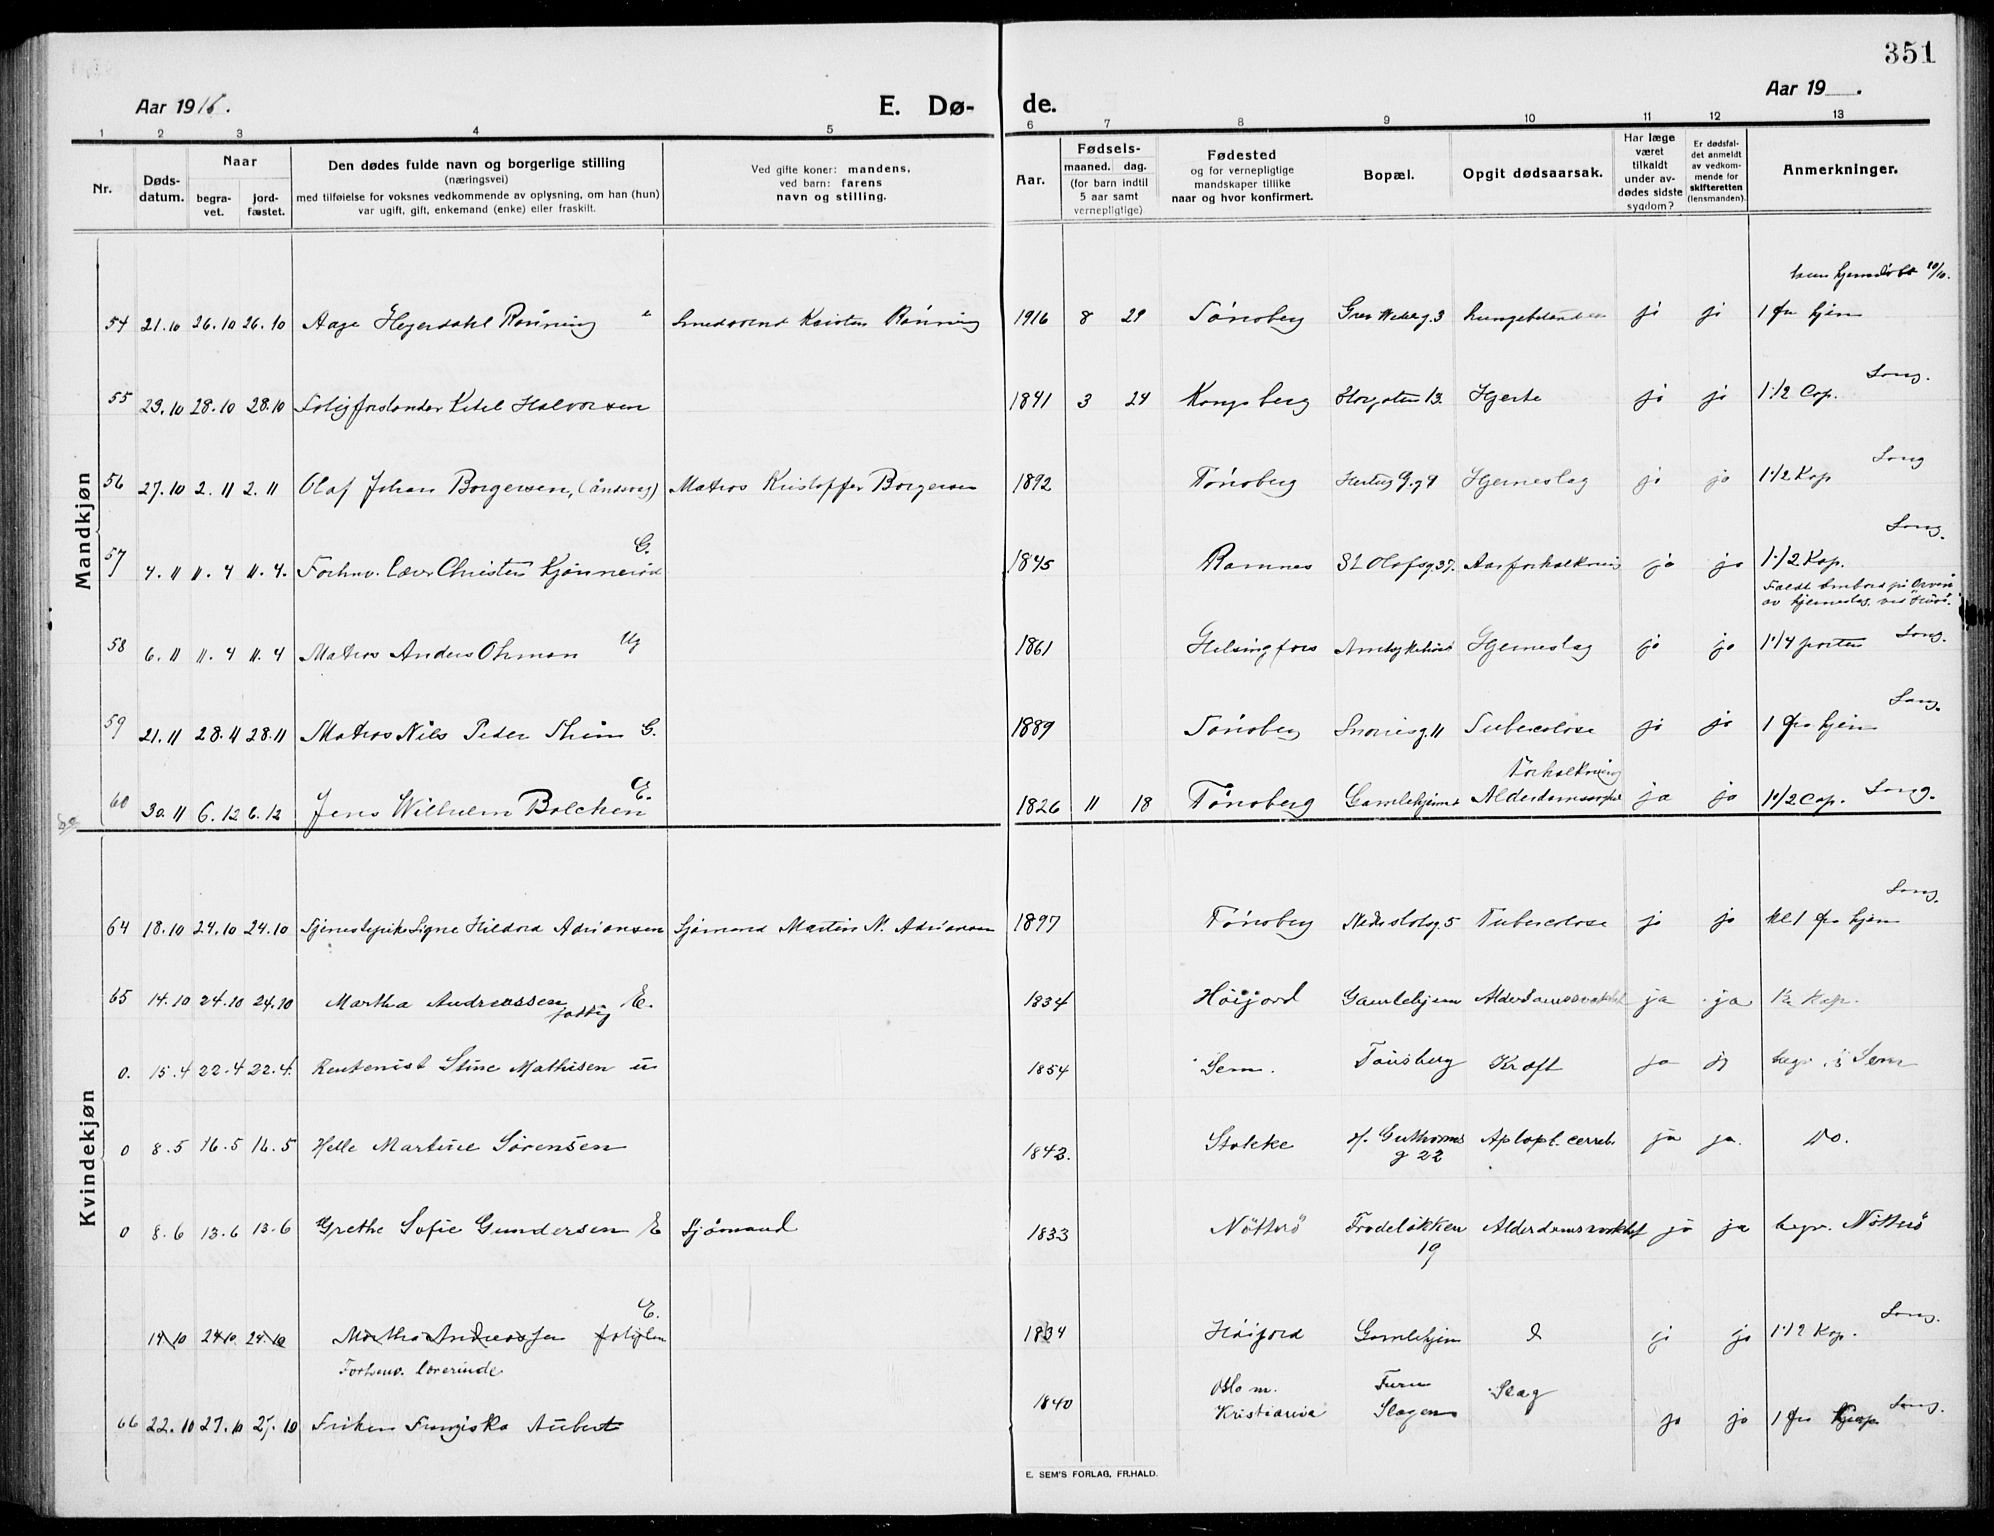 351
Aar 1916.
E. Dø-
de.
Aar 19 .
1 2 3 4 5 6 7 8 9 10 11 12 13
Nr.
Døds-
datum.
Naar
begra-
vet.
jord-
fæstet.
Den dødes fulde navn og borgerlige stilling
(næringsvei)
med tilføielse for voksnes vedkommende av oplysning, om han (hun)
var ugift, gift, enkemand (enke) eller fraskilt.
Ved gifte koner: mandens,
ved barn: farens
navn og stilling.
Aar.
Fødsels-
maaned. dag.
(for barn indtil
5 aar samt
vernepligtige)
Fødested
og for vernepligtige
mandskaper tillike
naar og hvor konfirmert.
Bopæl.
Opgit dødsaarsak.
Har læge
været
tilkaldt
under av-
dødes sidste
sygdom?
Er dødsfal-
det anmeldt
av vedkom-
mende for
skifteretten
(lensmanden).
Anmerkninger.
Mandkjøn
hjemdøbt 10/10.
54 21.10 26.10 26.10 Aage Heyerdahl Rønning Smedsvend Kristen Rønning 1916 8 29 Tønsberg Grev Wedelg. 3 ja ja 1 fra hjem
Song.
55 23.10 28.10 28.10 Ketil Halvorsen 1841 3 24 Kongsberg Storgaten 13. Hjerte ja ja 1.1/2 Cap.
Song
56 27.10 2.11 2.11 Olaf Johan Borgersen, (åndssvag) Matros Kristoffer Borgersen 1892 Tønsberg Hjerneslag ja ja 1.1/2 Kap
Song.
G.
57 4.11 11.4 11.4. Forhnv. Christen 1845 Ramnes St Olafsg 37. Aarforkalkning ja ja 1.1/2 Kap.
Faldt ombord på
av hjerneslag. ved
Song.
Ug
58 6.11 11.4 11.4 Matros Anders Ohman 1861 Helsingfors Hjerneslag ja ja 1.1/4 porten
Song.
59 21.11 28.11 28.11 Matros Nils Peder G. 1889 Tønsberg Snorresg. 11 Tuberculose ja ja 1 fra hjem
Forkalkning
E.
60 30.11 6.12 6.12 Jens Wilhelm Bolchen 1826 11 18 Tønsberg Gamlehjemet ja ja 1.1/2 Cap. Song.
Kvindekjøn
Song.
64 18.10 24.10 24.10 Tjenestepike Signe Hildora Adriansen Sjømand Martin N. Adriansen 1897 Tønsberg Nedreslotsg. 5 Tuberculose ja ja kl 1 fra hjem
65 14.10 24.10 24.10 Martha Andreassen fattig E. 1834 Höijord Gamlehjem ja ja 1½ Kap.
0. 15.4 22.4 22.4. Rentenist Stine Mathisen u 1854 Sem. Tønsberg Kræft ja ja begr. i Sem
0 8.5 16.5 16.5 Helle Martine Sørensen 1842. Stokke Guthorms
g 22 Apopl. cerebr. ja ja. Do.
0 8.6 13.6 13.6 Grethe Sofie Gundersen E Sjømand 1833 Nötterö Frodeløkken
19 Alderdomssvakhet ja ja begr. Nötterö
Song.
E.
14.10 24.10 24.10 Martha Andreassen 1834 Höijord Gamlehjem ja ja 1.1/2 Kap.
Forhenv. lærerinde
Oslo m.
66 22.10 27.10 27.10 Aubert 1840 Kristiania
Slagen Slag ja ja 1 fra Song.
E. SEM'S FORLAG, FR.HALD.